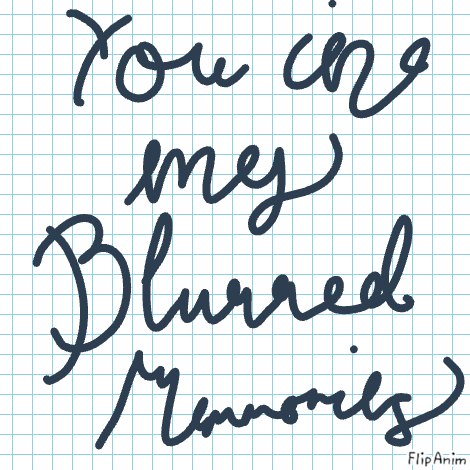 You in
my
Blurred
Memories
FlipAnim